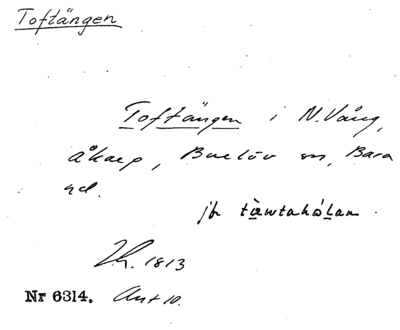 Toftängen
Toftängen i N. Vång,
Åkarp, Burlöv sn, Bara
hd.
jfr tåwtahålan.
1813
Nr 6314. Ant 10.